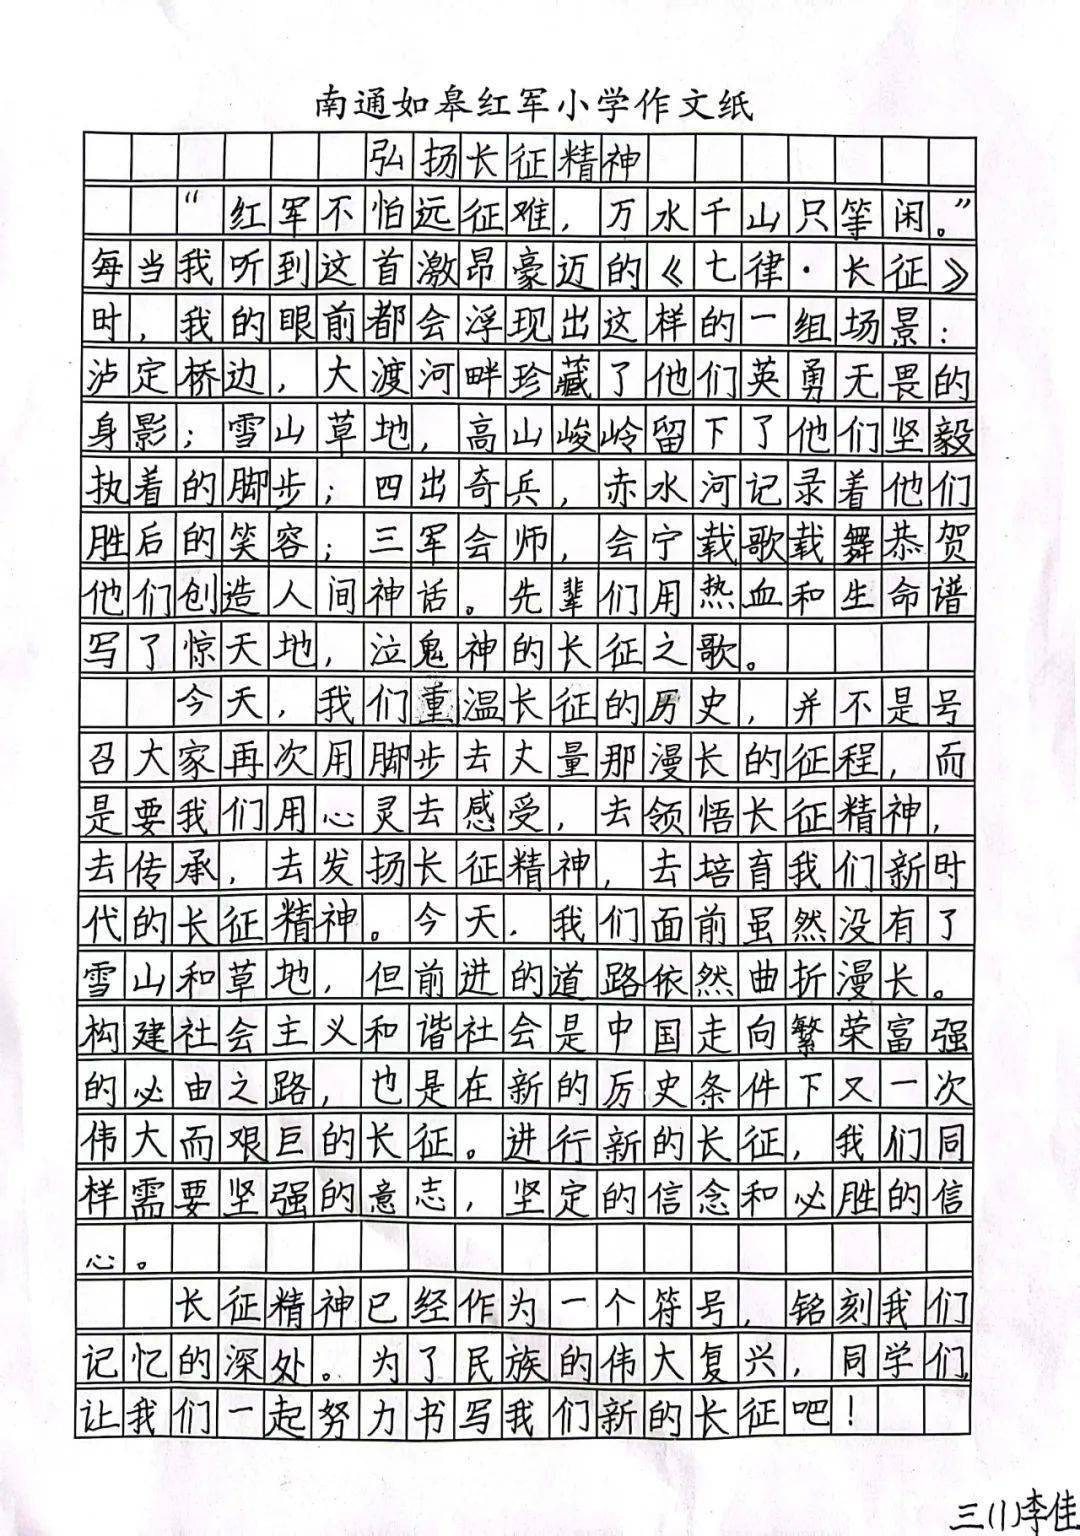 南通如皋红军小学作文纸
弘扬长征精神
“红军不怕远征难，万水千山只等闲。”
每当我听到这首激昂豪迈的《七律·长征》
时，我的眼前都会浮现出这样的一组场景：
泸定桥边，大渡河畔珍藏了他们英勇无畏的
身影；雪山草地，高山峻岭留下了他们坚毅
执着的脚步；四出奇兵，赤水河记录着他们
胜后的笑容；三军会师，会宁载歌载舞恭贺
他们创造人间神话。先辈们用热血和生命谱
写了惊天地，泣鬼神的长征之歌。
今天，我们重温长征的历史，并不是号
召大家再次用脚步去丈量那漫长的征程，而
是要我们用心灵去感受，去领悟长征精神，
去传承，去发扬长征精神，去培育我们新时
代的长征精神。今天．我们面前虽然没有了
雪山和草地，但前进的道路依然曲折漫长。
构建社会主义和谐社会是中国走向繁荣富强
的必由之路，也是在新的历史条件下又一次
伟大而艰巨的长征。进行新的长征，我们同
样需要坚强的意志，坚定的信念和必胜的信
心。
长征精神已经作为一个符号，铭刻我们
记忆的深处。为了民族的伟大复兴，同学们，
让我们一起努力书写我们新的长征吧！
三(1)李佳